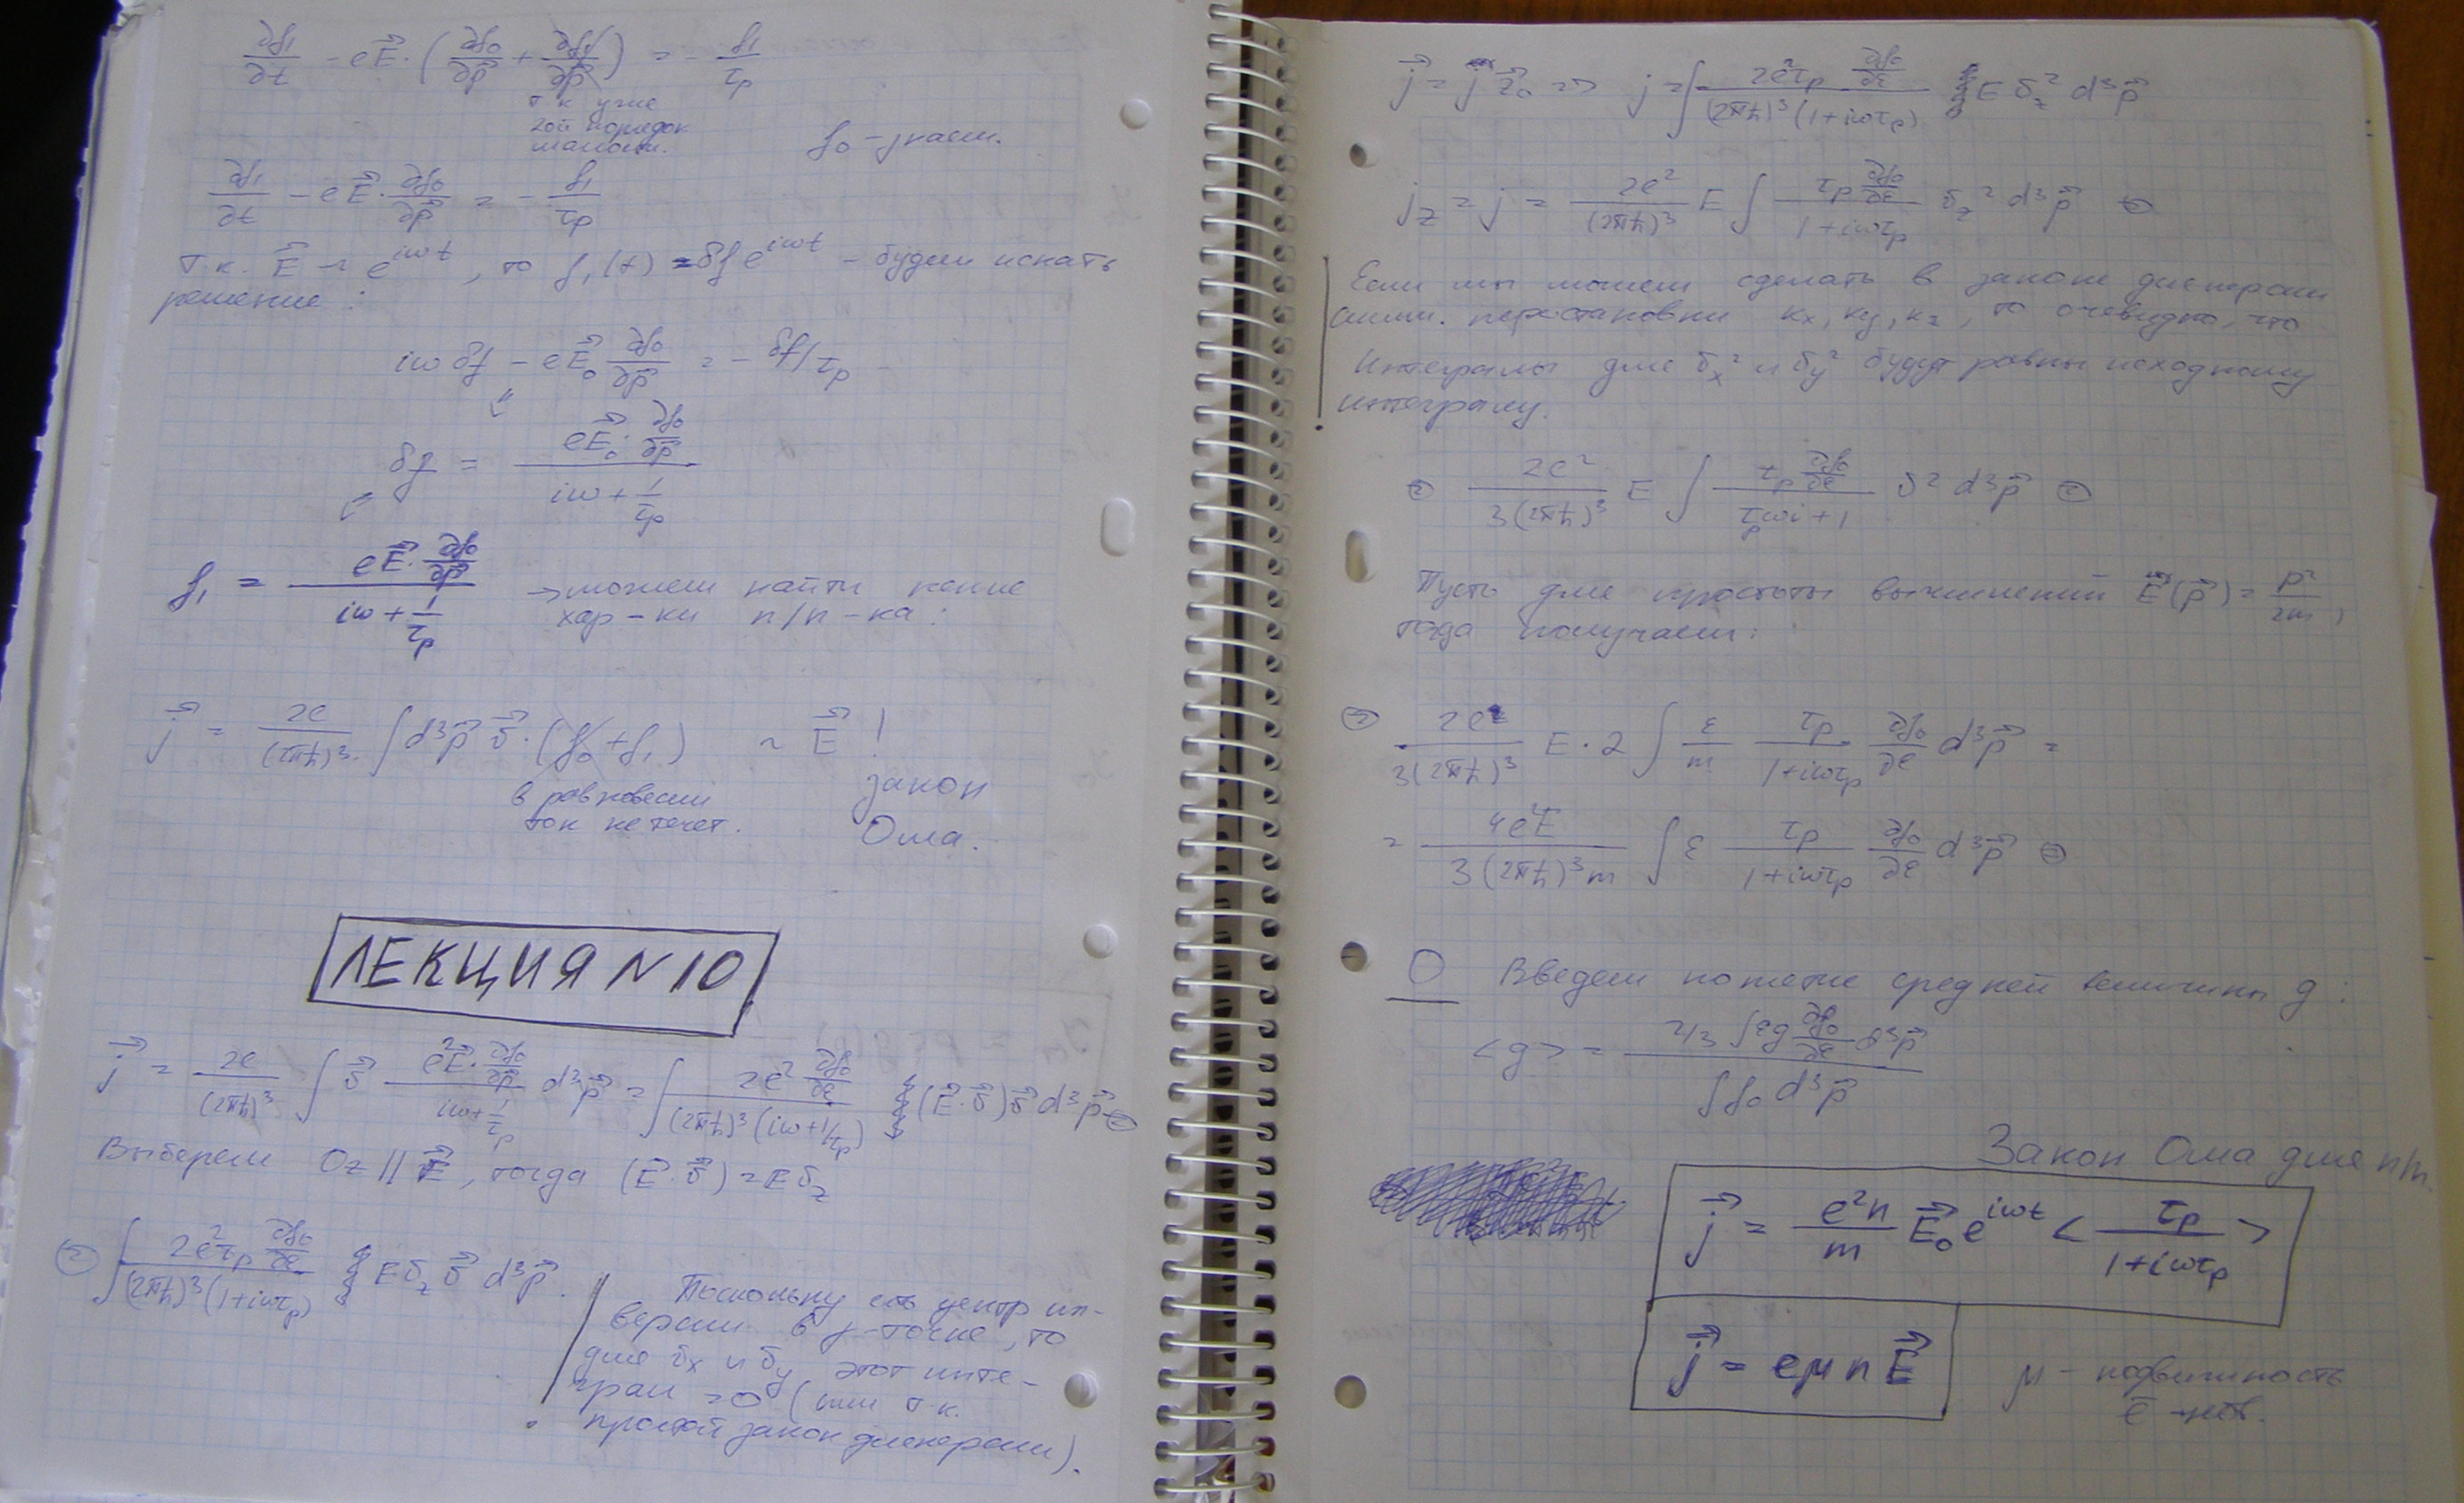 ∂f₁/∂t - eE⃗·(∂f₀/∂p⃗ + ∂f₁/∂p⃗) = - f₁/τp
т.к уже
2ой порядок
малости.
f₀ - знаем.
∂f₁/∂t - eE⃗·∂f₀/∂p⃗ = - f₁/τp
т.к. E⃗ ~ e^{iωt}, то f₁(t) = δf e^{iωt} - будем искать
решение:
iωδf - eE⃗₀ ∂f₀/∂p⃗ = - δf/τp
δf = (eE⃗₀·∂f₀/∂p⃗)/(iω + 1/τp)
f₁ = (eE⃗·∂f₀/∂p⃗)/(iω + 1/τp) → можем найти
хар-ки п/п-ка:
j⃗ = 2e/(2πħ)³ ∫d³p⃗ v⃗·(f₀ + f₁) ~ E⃗!
в равновесии
ток не течет.
закон
Ома.
ЛЕКЦИЯ N10
j⃗ = 2e/(2πħ)³ ∫ v⃗ (e²E⃗·∂f₀/∂p⃗)/(iω + 1/τp) d³p⃗ = ∫ (2e² ∂f₀/∂ε)/((2πħ)³(iω + 1/τp)) (E⃗·v⃗)v⃗ d³p⃗ ⊜
Выберем Oz || E⃗, тогда (E⃗·v⃗) = Ev_z
⊜ ∫ (2e²τp ∂f₀/∂ε)/((2πħ)³(1+iωτp)) Ev_z v⃗ d³p⃗.
Поскольку есть центр ин-
версии в γ-точке, то
для v_x и v_y этот инте-
грал = 0 (или т.к.
простой закон дисперсии).
j⃗ = j z⃗₀ => j = ∫ (2e²τp ∂f₀/∂ε)/((2πħ)³(1+iωτp)) E v_z² d³p⃗
j_z = j = 2e²/(2πħ)³ E ∫ (τp ∂f₀/∂ε)/(1+iωτp) v_z² d³p⃗ ⊜
Если мы можем сделать в законе дисперсии
симм. перестановки kx, ky, kz, то очевидно, что
Интегралы для v_x² и v_y² будут равны исходному
интегралу.
⊜ 2e²/(3(2πħ)³) E ∫ (τp ∂f₀/∂ε)/(τpωi + 1) v² d³p⃗ ⊜
Пусть для простоты вычислений E(p⃗) = p²/2m,
тогда получаем:
⊜ 2e²/(3(2πħ)³) E·2 ∫ ε/m τp/(1+iωτp) ∂f₀/∂ε d³p⃗ =
= 4e²E/(3(2πħ)³m) ∫ ε τp/(1+iωτp) ∂f₀/∂ε d³p⃗ ⊜
О Введем понятие средней величины g:
<g> = (2/3 ∫εg ∂f₀/∂ε d³p⃗)/(∫f₀ d³p⃗)
Закон Ома для п/п.
j⃗ = e²n/m E⃗₀e^{iωt} <τp/(1+iωτp)>
j⃗ = eμnE⃗
μ - подвижность